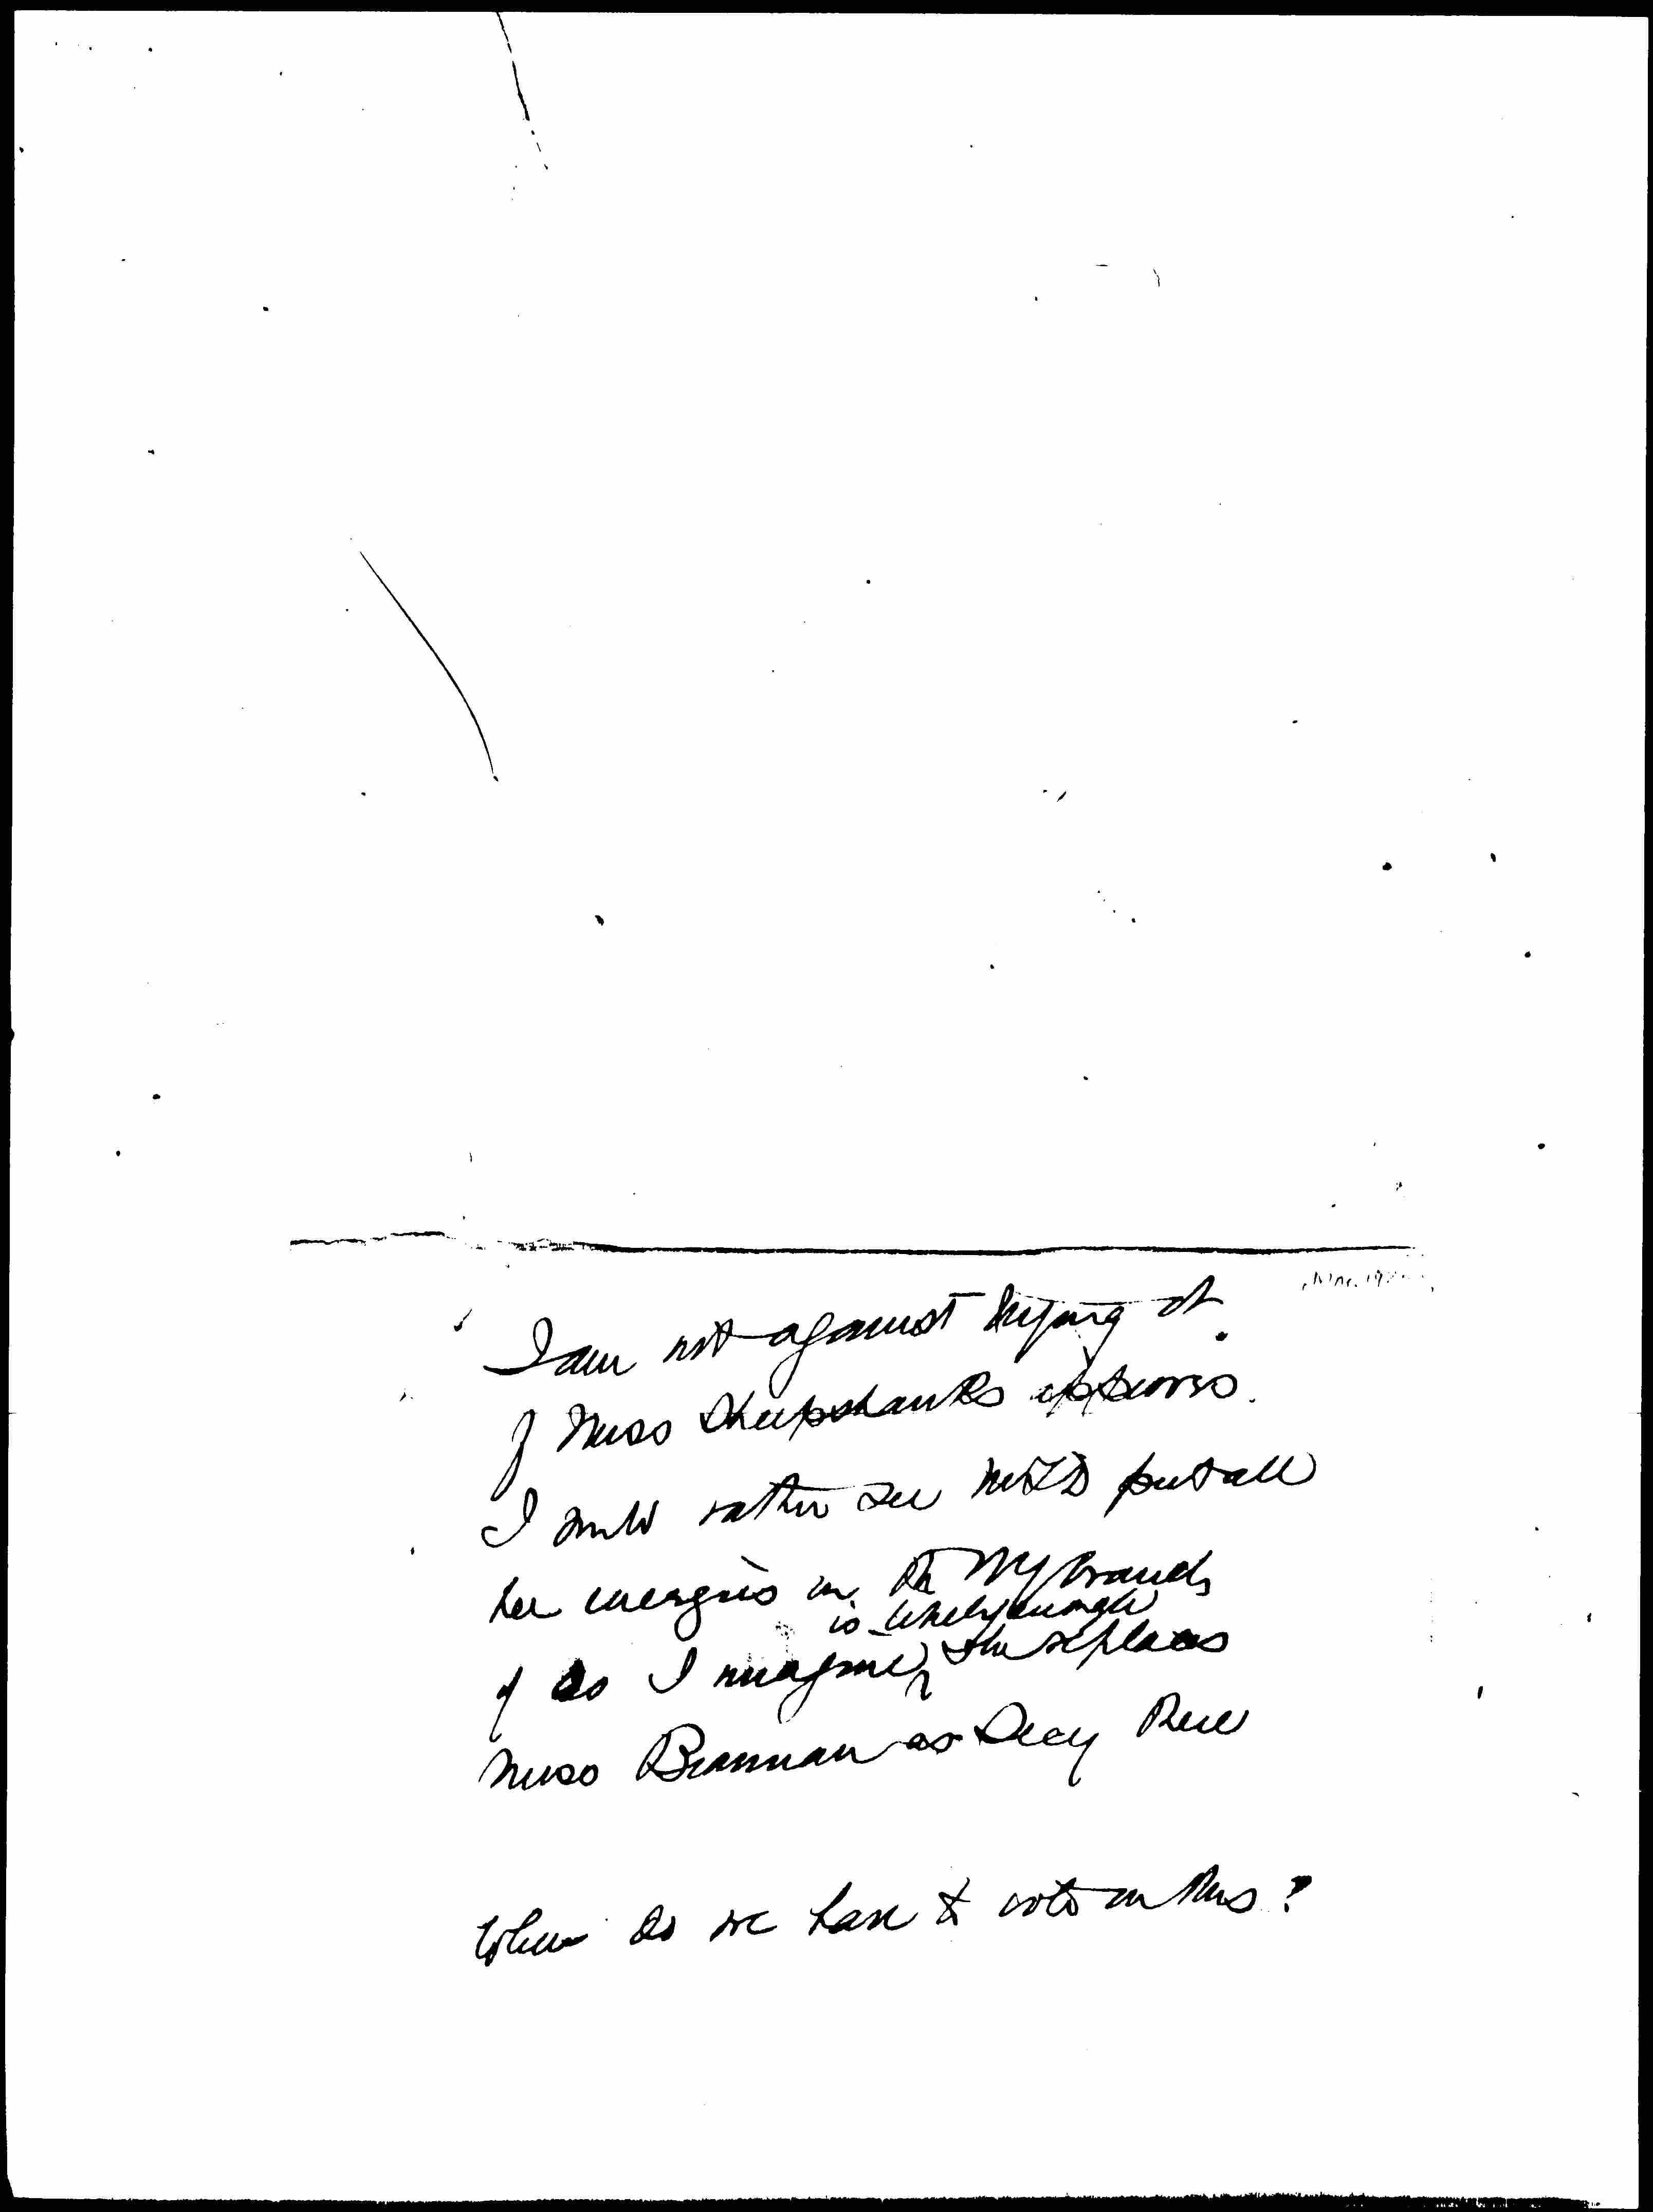 I am not against trying it
if Miss Sheepshanks approves.
I would rather see put all
her energies in the NY branch
if as I imagine, is likely enough she replaces
Miss Brannan as Secy there
When do we have to vote on this?